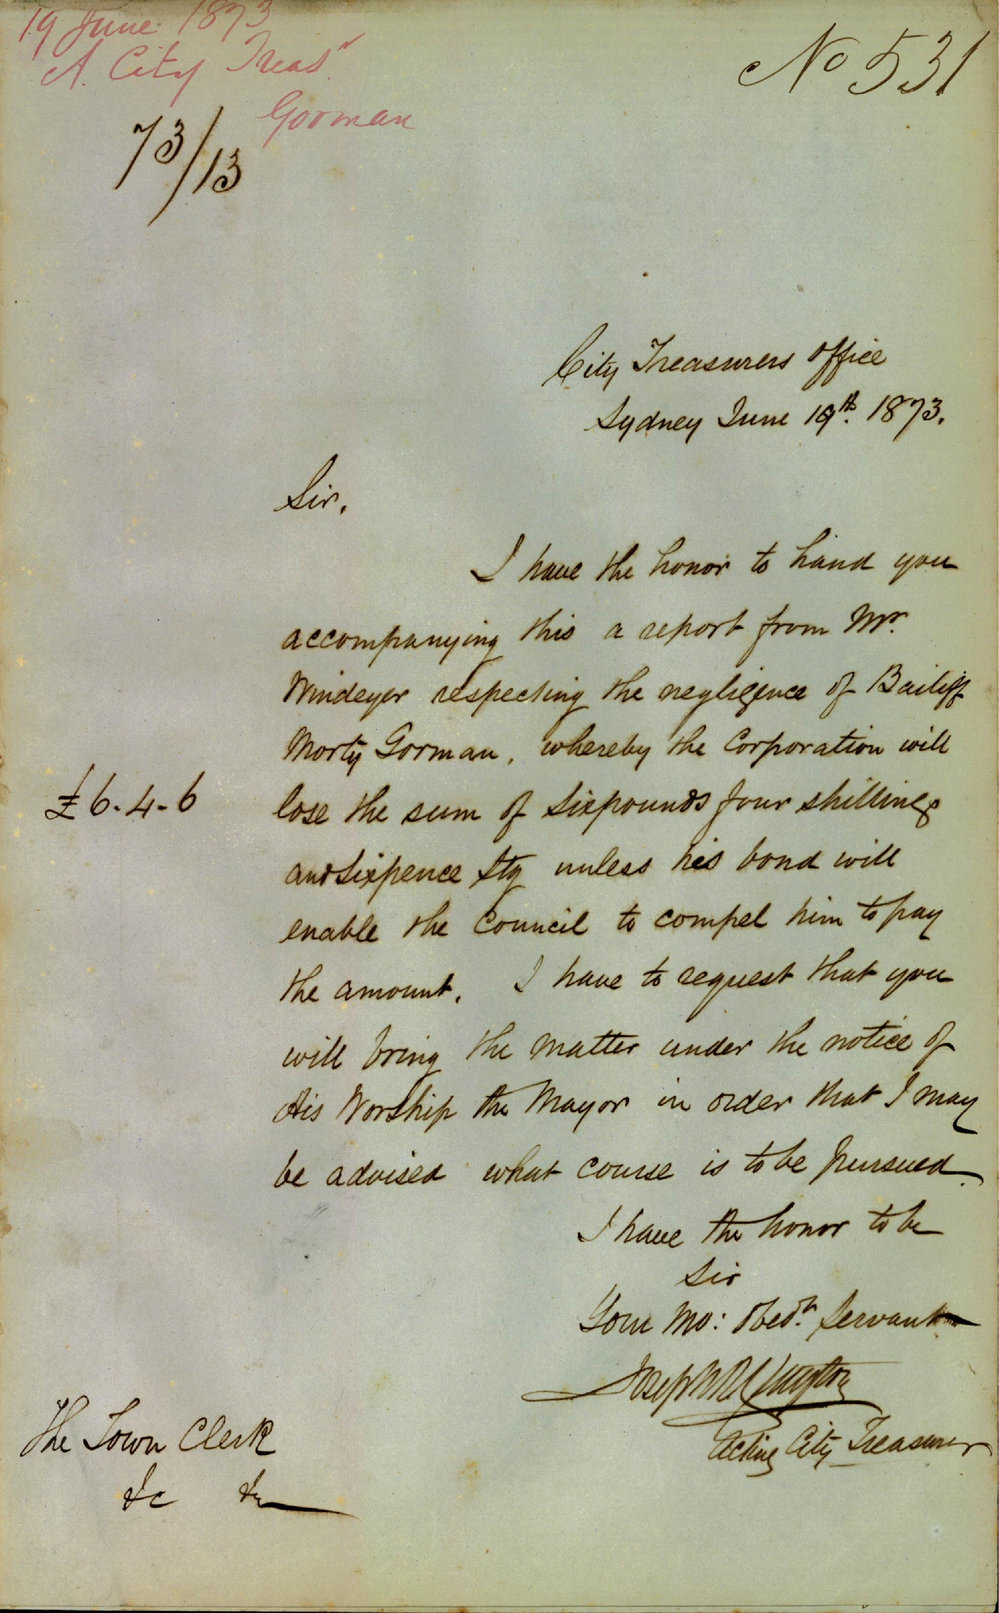 19 June 1873
A. City Treasr
Gorman
No 531
73/13
City Treasurers Office
Sydney June 19th. 1873.
Sir,
I have the honor to hand you
accompanying this a report from Mr.
Windeyer respecting the negligence of Bailiff
Morty Gorman, whereby the Corporation will
£6-4-6 lose the sum of Sixpounds four shillings
and Sixpence Stg unless his bond will
enable the Council to compel him to pay
the amount. I have to request that you
will bring the matter under the notice of
His Worship the Mayor in order that I may
be advised what course is to be pursued.
I have the honor to be
Sir
Your Mo: Obedt. Servant
Joseph
Acting City Treasurer
The Town Clerk
&c &c